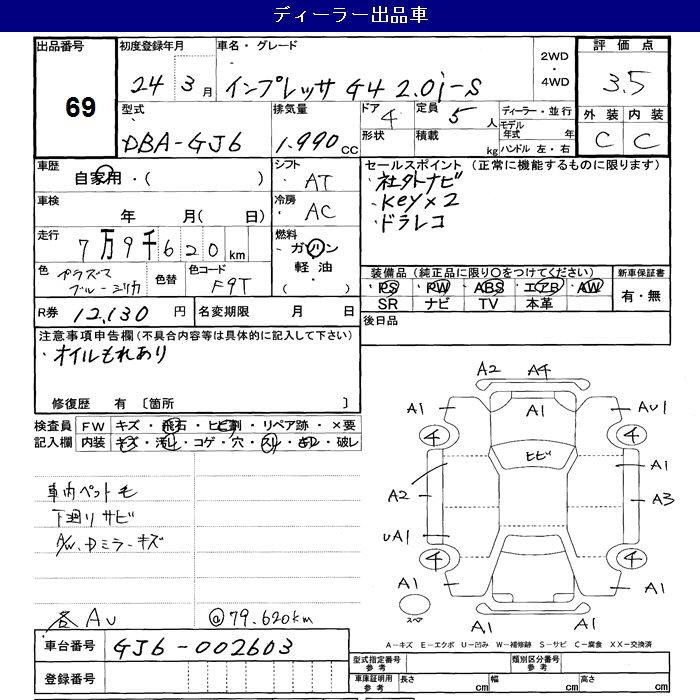 ディーラー出品車
出品番号
69
初度登録年月
24年3月
車名・グレード
インプレッサ G4 2.0i-S
2WD
・
4WD
評価点
3.5
外装 内装
C C
型式
DBA-GJ6
排気量
1.990CC
ドア 4
形状
定員 5人
積載 kg
ディーラー・並行
モデル年式 年
ハンドル 左・右
車歴
自家用・( )
シフト
・AT
車検
年 月( 日)
冷房
・AC
走行
7万9千620km
燃料
・ガソリン
軽油・
( )
色
プラズマブルーシリカ
色替
色コード
F9T
セールスポイント(正常に機能するものに限ります)
・社外ナビ
・Key×2
・ドラレコ
装備品(純正品に限り〇をつけてください)
・PS・PW・ABS・エアB・AW
SR ナビ TV 本革
新車保証書
有・無
R券 12,130円
名変期限 月 日
後日品
注意事項申告欄(不具合内容等は具体的に記入して下さい)
・オイルもれあり
修復歴 有〔箇所 〕
検査員記入欄
FW キズ・飛石・ヒビ割・リペア跡・×要
内装 キズ・汚れ・コゲ・穴・スレ・・破レ
車内ペット毛
下廻りサビ
A/W、Dミラーキズ
各AU
@79.620km
A2 A4
A1 A1 AU1
4 4
ヒビ A1
A2 A3
UA1 A1
4 4
A1 A1
スペア
A1 A1
A-キズ E-エクボ U-凹み W-補修跡 S-サビ C-腐食 XX-交換済
車台番号 GJ6-002603
登録番号
型式指定番号 参考
類別区分番号 参考
車庫証明用 参考
長さ cm 幅 cm 高さ cm